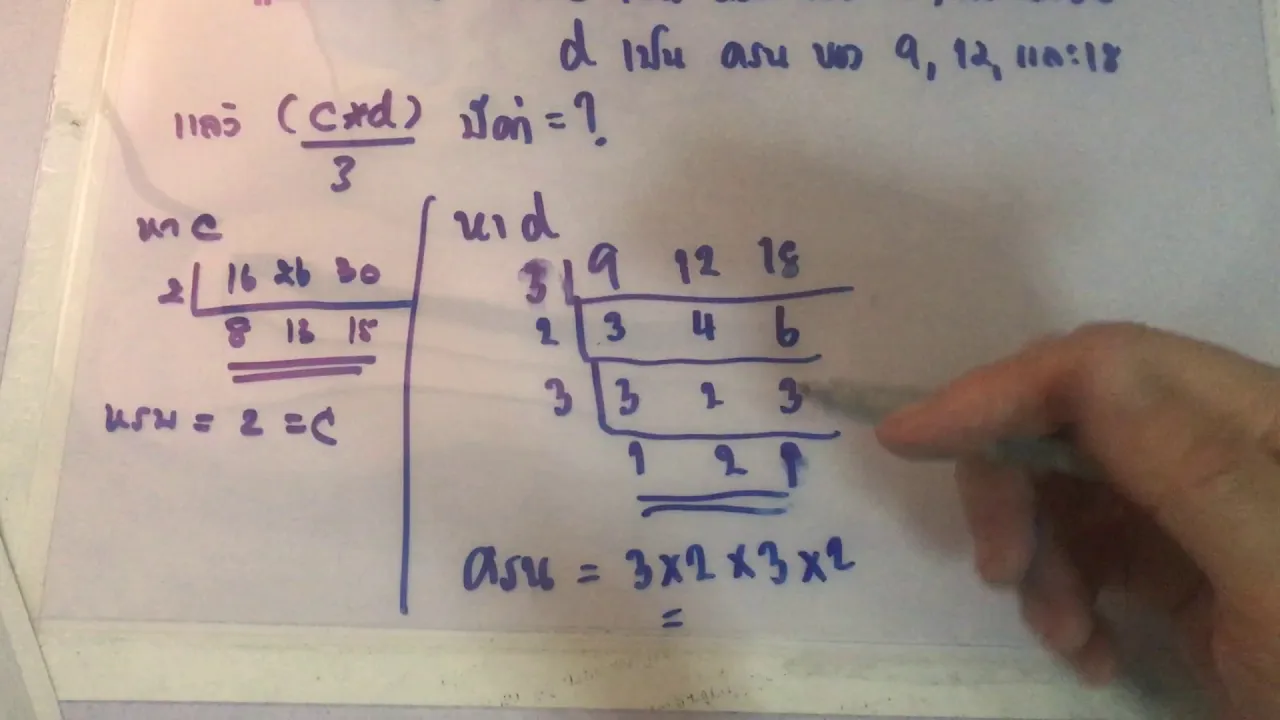 d เป็น ครน ของ 9, 12, และ 18
แล้ว (c*d) มีค่า = ?
3
หา c
2 16 26 30
8 13 15
หรม = 2 = c
หา d
3 9 12 18
2 3 4 6
3 3 2 3
1 2 1
ครน = 3×2×3×2
=